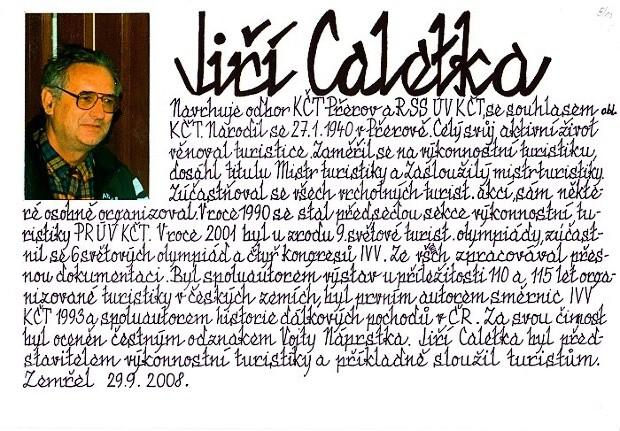 Jiří Caletka
Navrhuje odbor KČT Přerov a RSS ÚV KČT, se souhlasem obl.
KČT. Narodil se 27.1.1940 v Přerově. Celý svůj aktivní život
věnoval turistice. Zaměřil se na výkonnostní turistiku,
dosáhl titulu Mistr turistiky a Zasloužilý mistr turistiky.
Zúčastňoval se všech vrcholných turist. akcí, sám někte-
ré osobně organizoval. V roce 1990 se stal předsedou sekce výkonnostní tu-
ristiky PR ÚV KČT. V roce 2001 byl u zrodu 9. světové turist. olympiády, zúčast-
nil se 6 světových olympiád a čtyř kongresů IVV. Ze všch zpracovával přes-
nou dokumentaci. Byl spoluautorem výstav u příležitosti 110 a 115 let orga-
nizované turistiky v českých zemích, byl prvním autorem směrnic IVV
KČT 1993 a spoluautorem historie dálkových pochodů v ČR. Za svou činnost
byl oceněn čestným odznakem Vojty Náprstka. Jiří Caletka byl před-
stavitelem výkonnostní turistiky a příkladně sloužil turistům.
Zemřel 29.9. 2008.